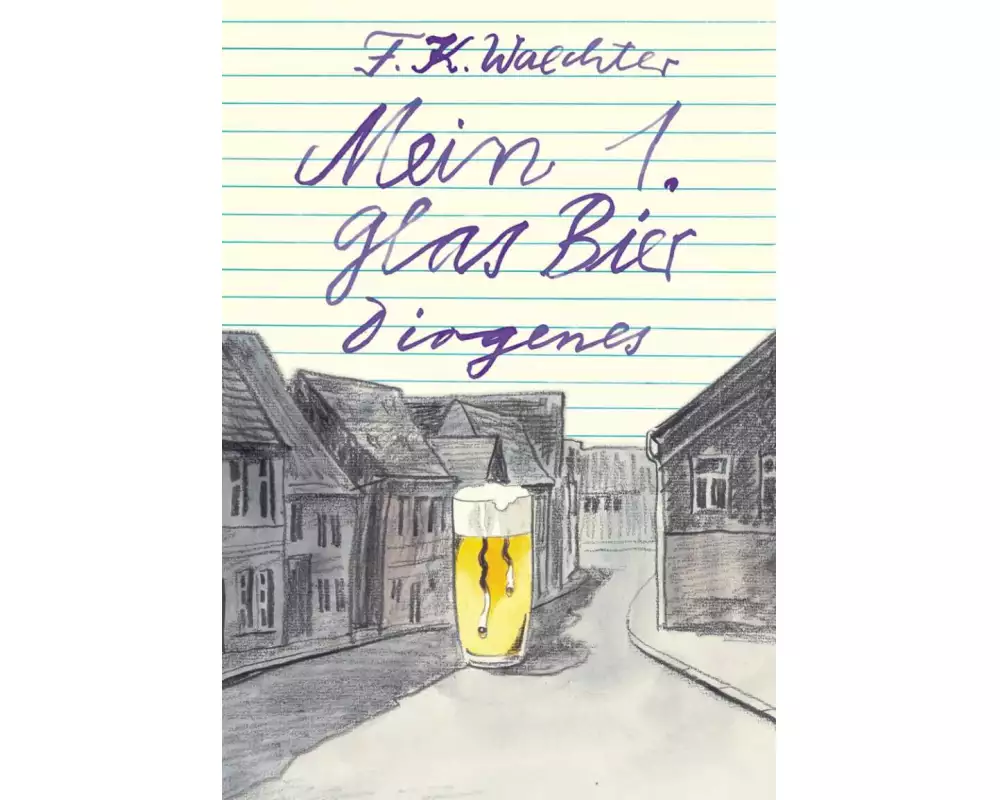 F. K. Waechter
Mein 1.
glas Bier
diogenes